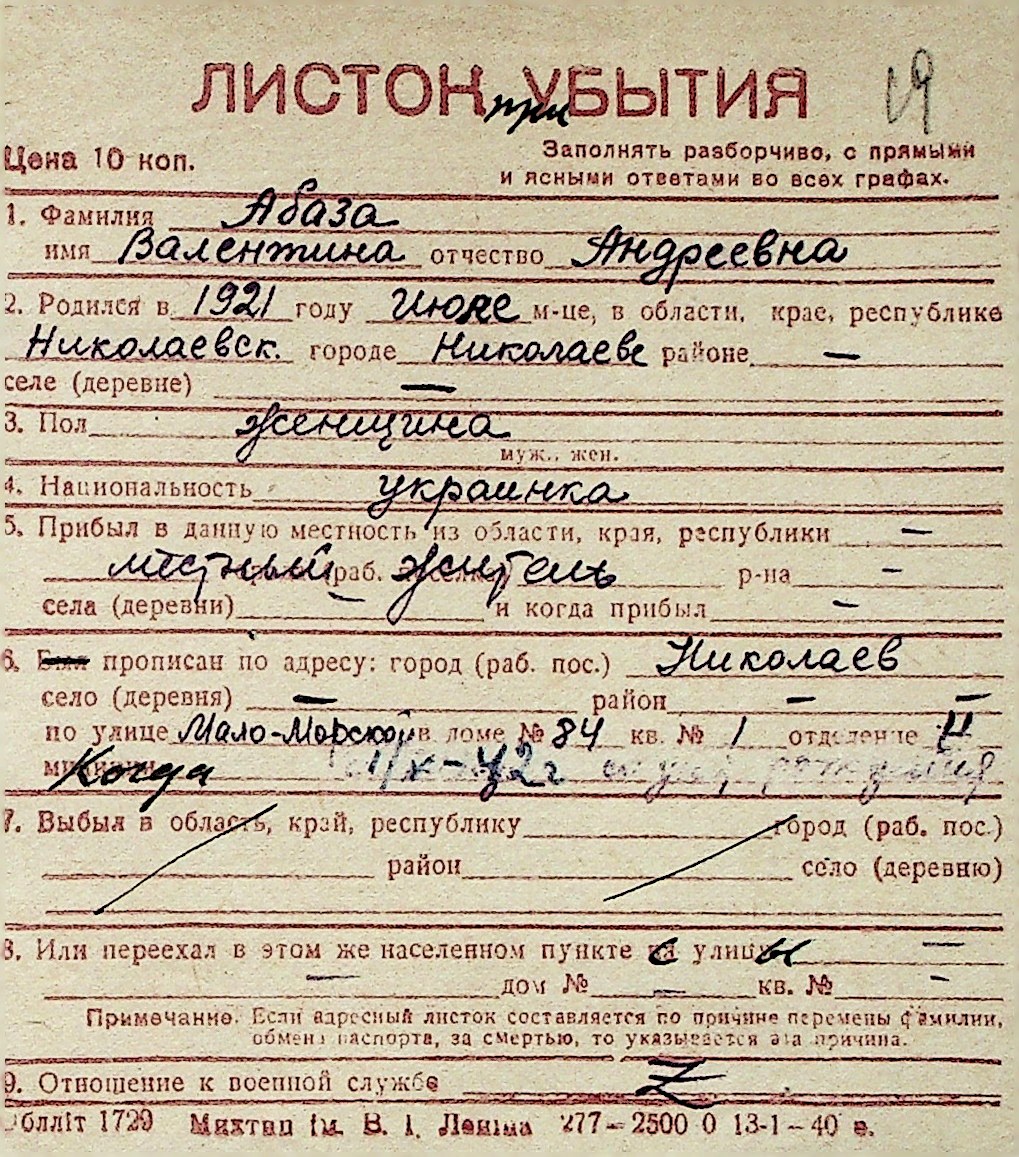 ЛИСТОК при УБЫТИЯ 19
Цена 10 коп. Заполнять разборчиво, с прямыми
и ясными ответами во всех графах.
1. Фамилия Абаза
имя Валентина отчество Андреевна
2. Родился в 1921 году Июне м-це, в области, крае, республике
Николаевск. городе Николаеве районе —
селе (деревне) —
3. Пол женщина
муж., жен.
4. Национальность украинка
5. Прибыл в данную местность из области, края, республики —
местный раб. житель р-на —
села (деревни) — и когда прибыл —
6. Был прописан по адресу: город (раб. пос.) Николаев
село (деревня) — район — —
по улице Мало-Морской в доме № 84 кв. № 1 отделение
милиции Когда
7. Выбыл в область, край, республику город (раб. пос.)
район село (деревню)
8. Или переехал в этом же населенном пункте с улицы —
— дом № — кв. № —
Примечание. Если адресный листок составляется по причине перемены фамилии,
обмена паспорта, за смертью, то указывается эта причина.
9. Отношение к военной службе Z
Облліт 1729 Миктип ім. В. І. Леніна 277—2500 0 13-1—40 в.